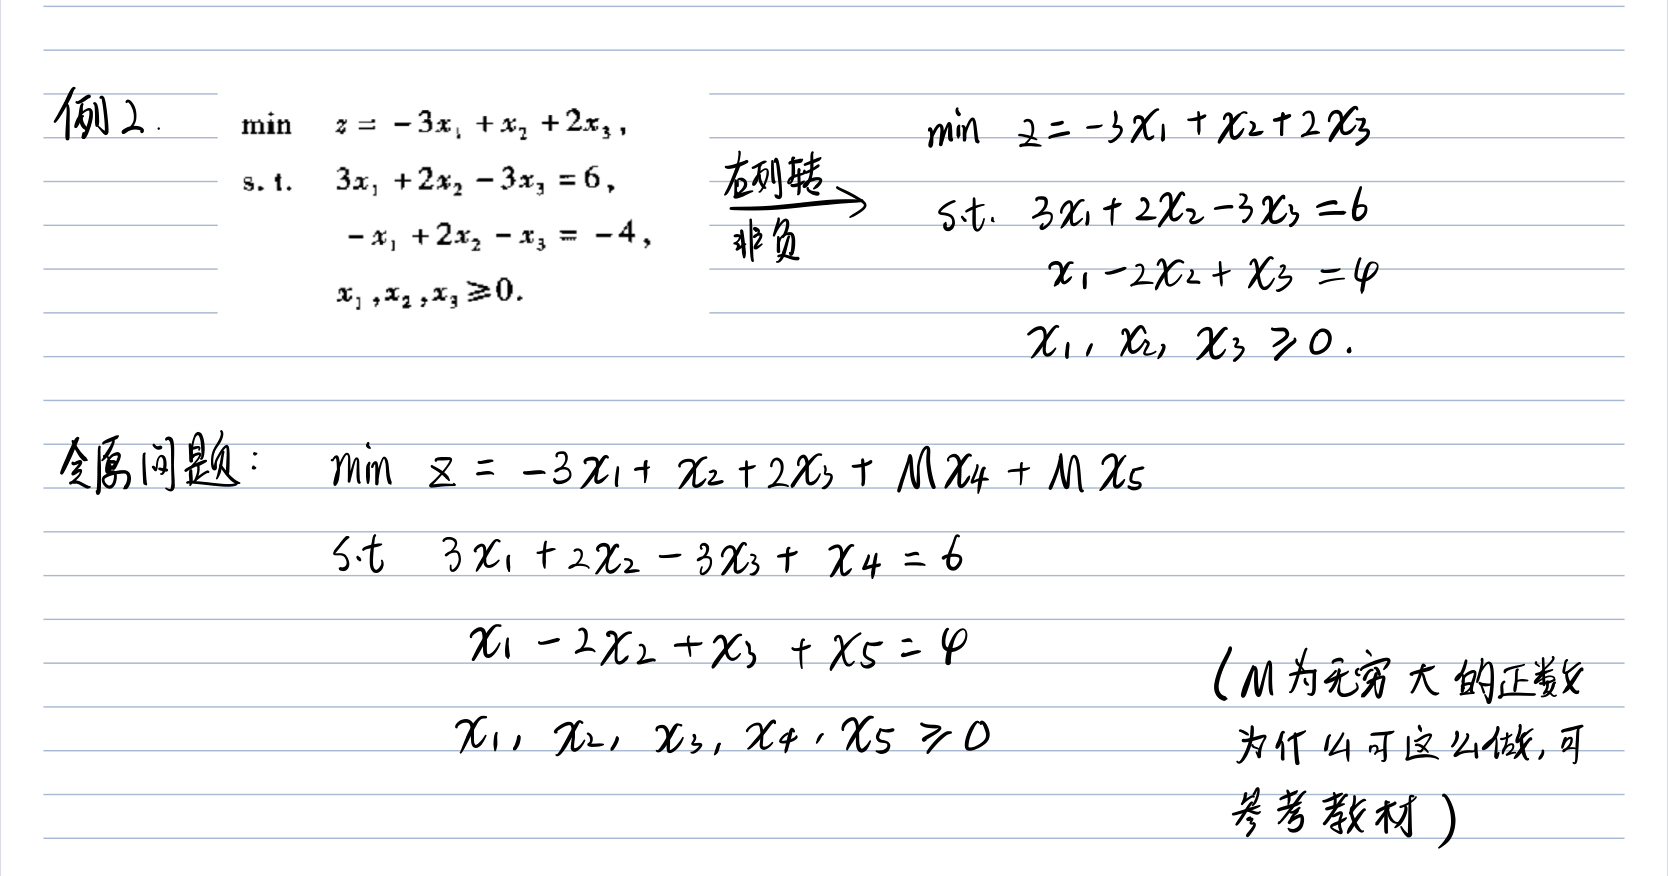 例2. min z = -3x₁ + x₂ + 2x₃,
s. t. 3x₁ + 2x₂ - 3x₃ = 6,
-x₁ + 2x₂ - x₃ = -4,
x₁, x₂, x₃ ≥ 0.
右列转
非负
min z = -3x₁ + x₂ + 2x₃
s.t. 3x₁ + 2x₂ - 3x₃ = 6
x₁ - 2x₂ + x₃ = 4
x₁, x₂, x₃ ≥ 0.
令原问题: min z = -3x₁ + x₂ + 2x₃ + Mx₄ + Mx₅
s.t 3x₁ + 2x₂ - 3x₃ + x₄ = 6
x₁ - 2x₂ + x₃ + x₅ = 4
x₁, x₂, x₃, x₄, x₅ ≥ 0
(M为无穷大的正数
为什么可这么做,可
参考教材)